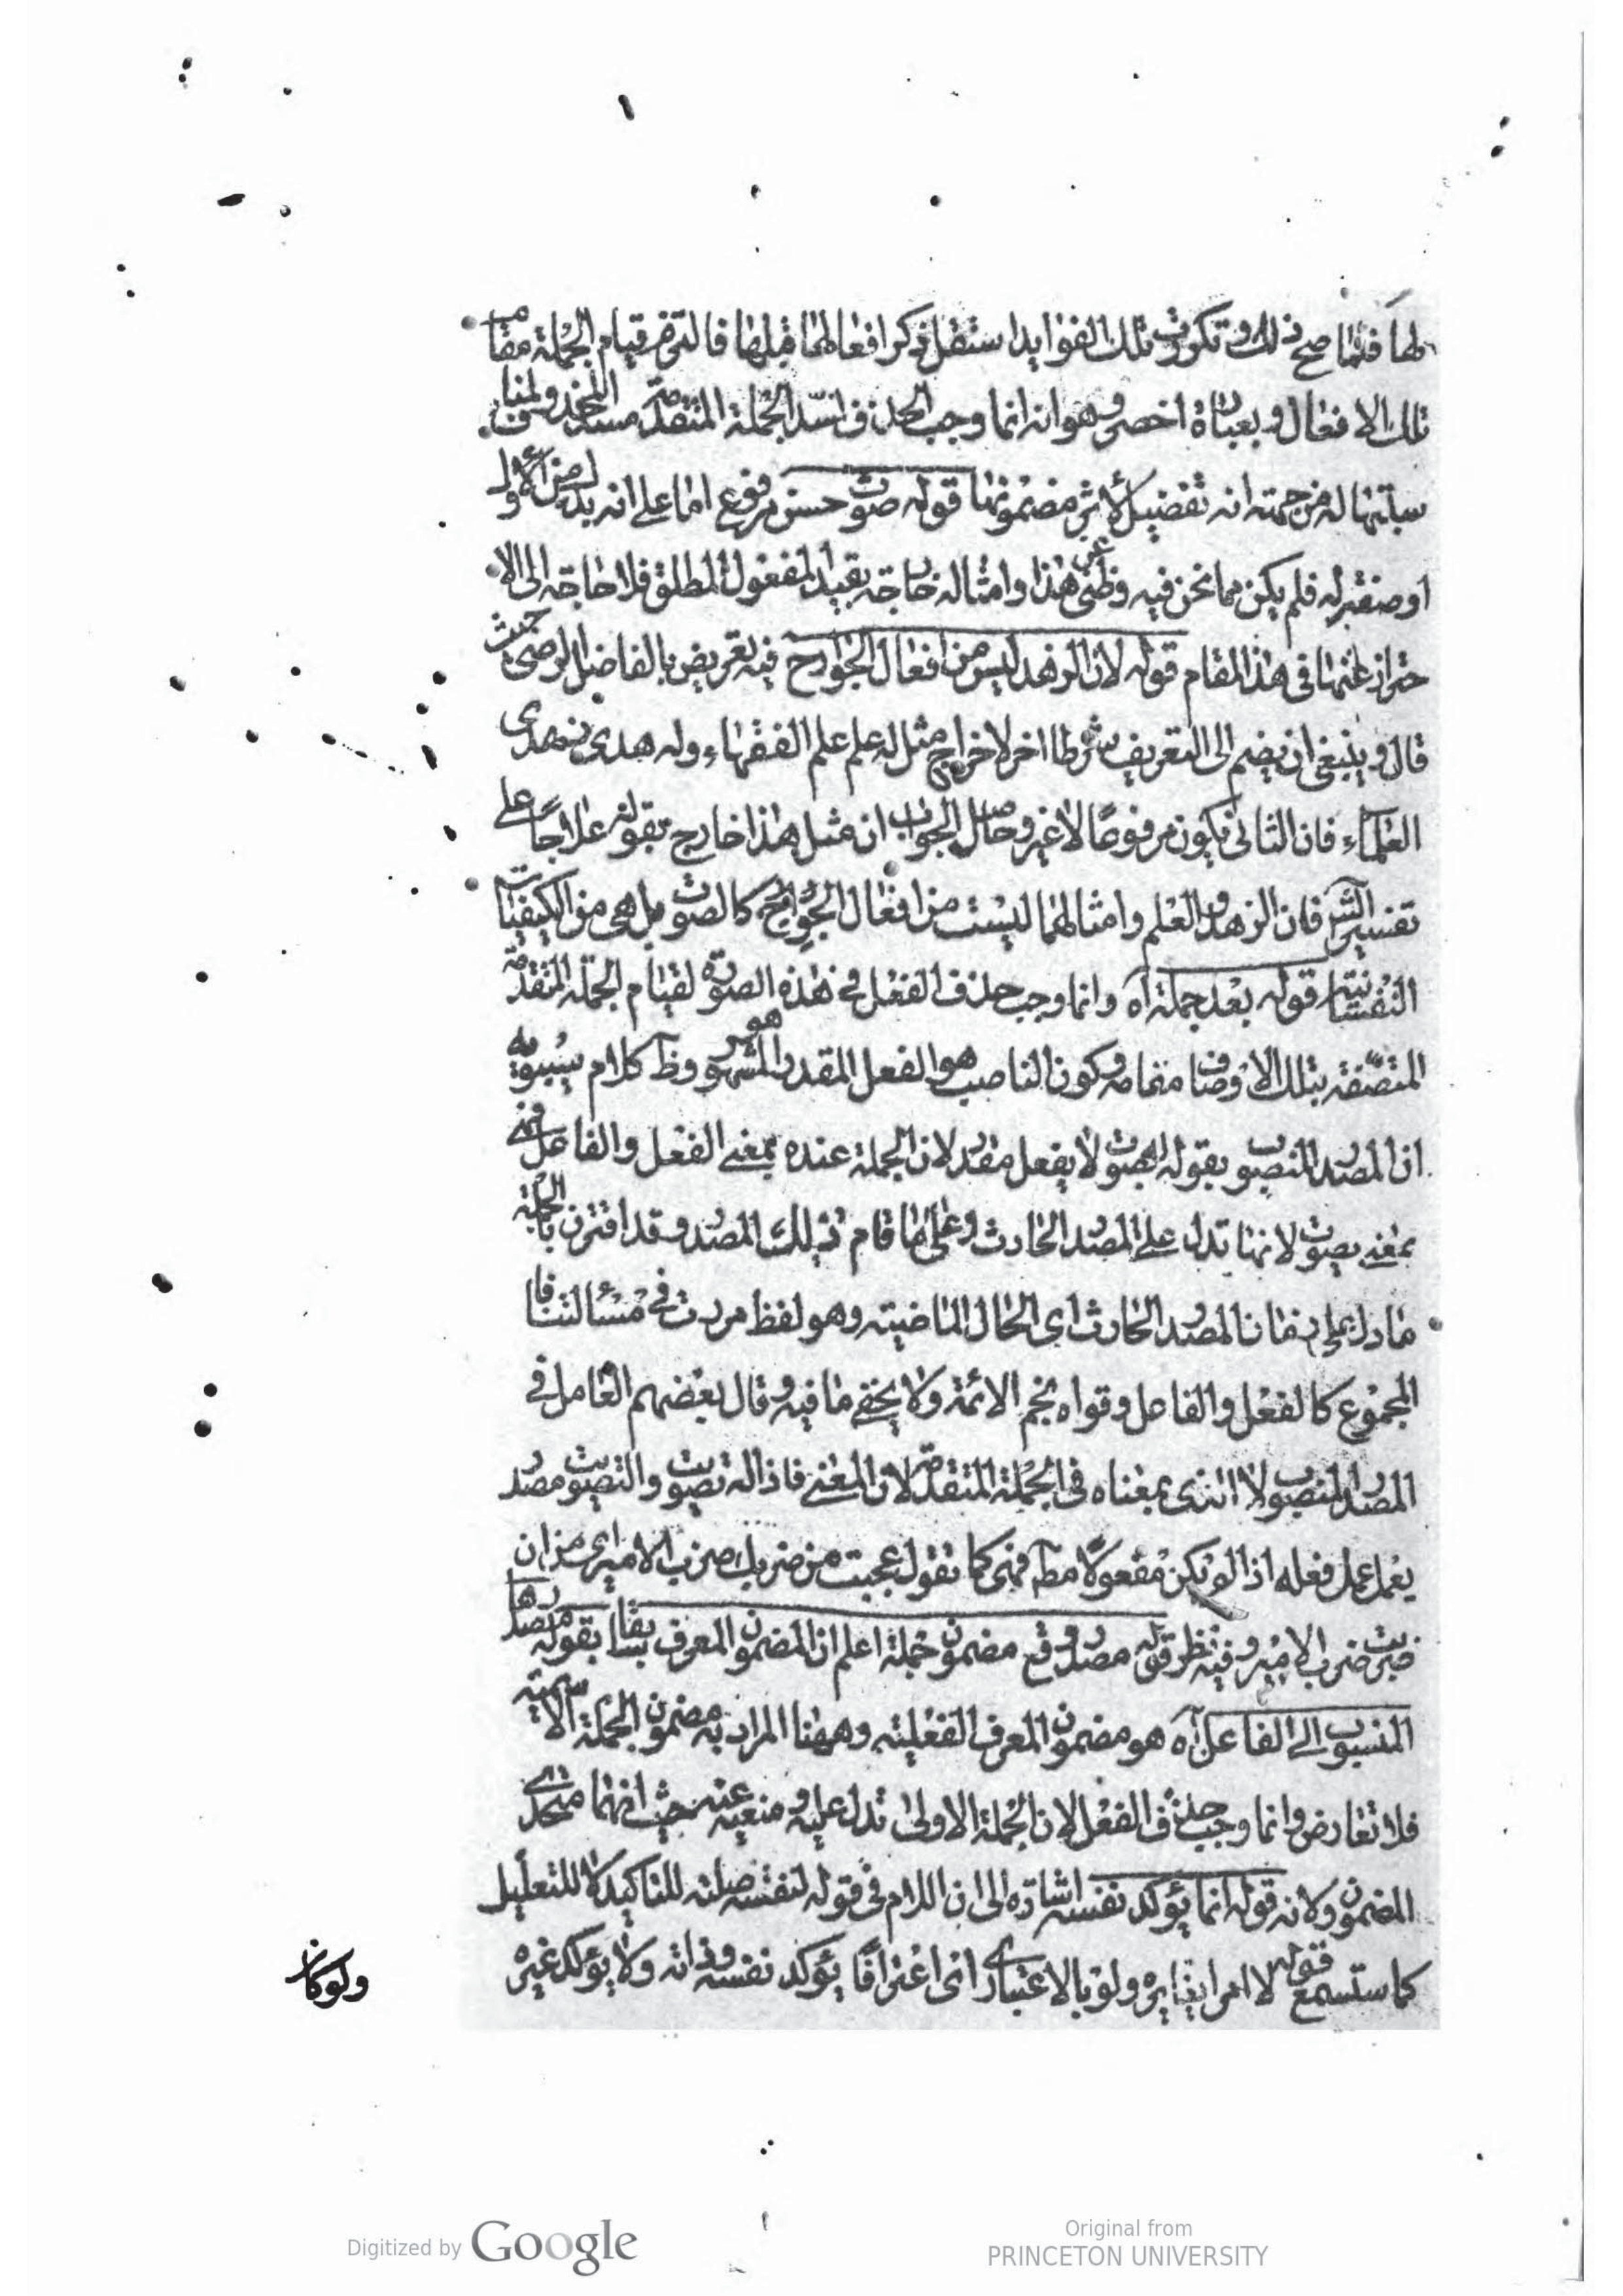 لها فلما صح ذلك وتكررت تلك الفوايد استثقل ذكر افعالها قبلها فالتزم قيام الجملة مقام
تلك الافعال وبعبارة اخصر وهو انه انما وجب الحذف لسد الجملة المتقدمة مسد المحذوف
له من جهة انه تفصيل لاثر مضمونها قوله صوت حسن مرفوع اما على انه بدل من الاول
او صفة له فلم يكن مما نحن فيه وظني هذا وامثاله خارجة بقيد المفعول المطلق فلا حاجة الى الا
حتراز عنها في هذا المقام قوله لان الزهد ليس من افعال الجوارح فيه تعريض بالفاضل الرضي حيث
قال وينبغي ان يضم الى التعريف شرطا اخر لاخراج مثل له علم علم الفقهاء وله هدى هدى
العلماء فان الثاني يكون مرفوعا لا غير وحاصل الجواب ان مثل هذا خارج بقوله علاجا على
تفسير الش فان الزهد والعلم وامثالهما ليست من افعال الجوارح كالصوت بل هي من الكيفيات
النفسانية قوله بعد جملة آه وانما وجب حذف الفعل في هذه الصورة لقيام الجملة المتقدمة
المتصفة بتلك الاوصاف مقامه وكون الناصب هو الفعل المقدر هو المشهور وظ كلام سيبويه
ان المصدر المنصوب بقوله له صوت لا بفعل مقدر لان الجملة عنده بمعنى الفعل والفاعل فهي
بمعنى يصوت لانها تدل على المصدر الحادث وعلى ما قام به ذلك المصدر وقد اقترن بالجملة
ما دل على زمان المصدر الحادث اى الحال الماضية وهو لفظ مررت في مسألتنا فا
المجموع كالفعل والفاعل وقواه نجم الائمة ولا يخفى ما فيه وقال بعضهم العامل في
المصدر المنصوب الذى بمعناه فى الجملة المتقدمة لان المعنى فاذا له تصويت والتصويت مصدر
يعمل عمل فعله اذا لم يكن مفعولا مط فهى كما تقول عجبت من ضربك ضرب الامير اى من ان
ضربت ضرب الامير وفيه نظر قوله مصدر وقع مضمون جملة اعلم ان المضمون المعرف سابقا بقوله مصدرها
المنسوب الى الفاعل آه هو مضمون المعرف الفعلية وههنا المراد به مضمون الجملة الاسمية
فلا تعارض وانما وجب حذف الفعل لان الجملة الاولى تدل عليه ومنعية عنه حيث انهما متحدى
المضمون ولانه قوله انما يؤكد نفسه اشارة الى ان اللام في قوله لنفسه صلته للتاكيد لا للتعليل
كما ستسمع قوله لا امرا يغايره ولو بالاعتبار اى اعترافا يؤكد نفسه وذاته ولا يؤكد غيره
ولو كان
Digitized by Google
Original from
PRINCETON UNIVERSITY